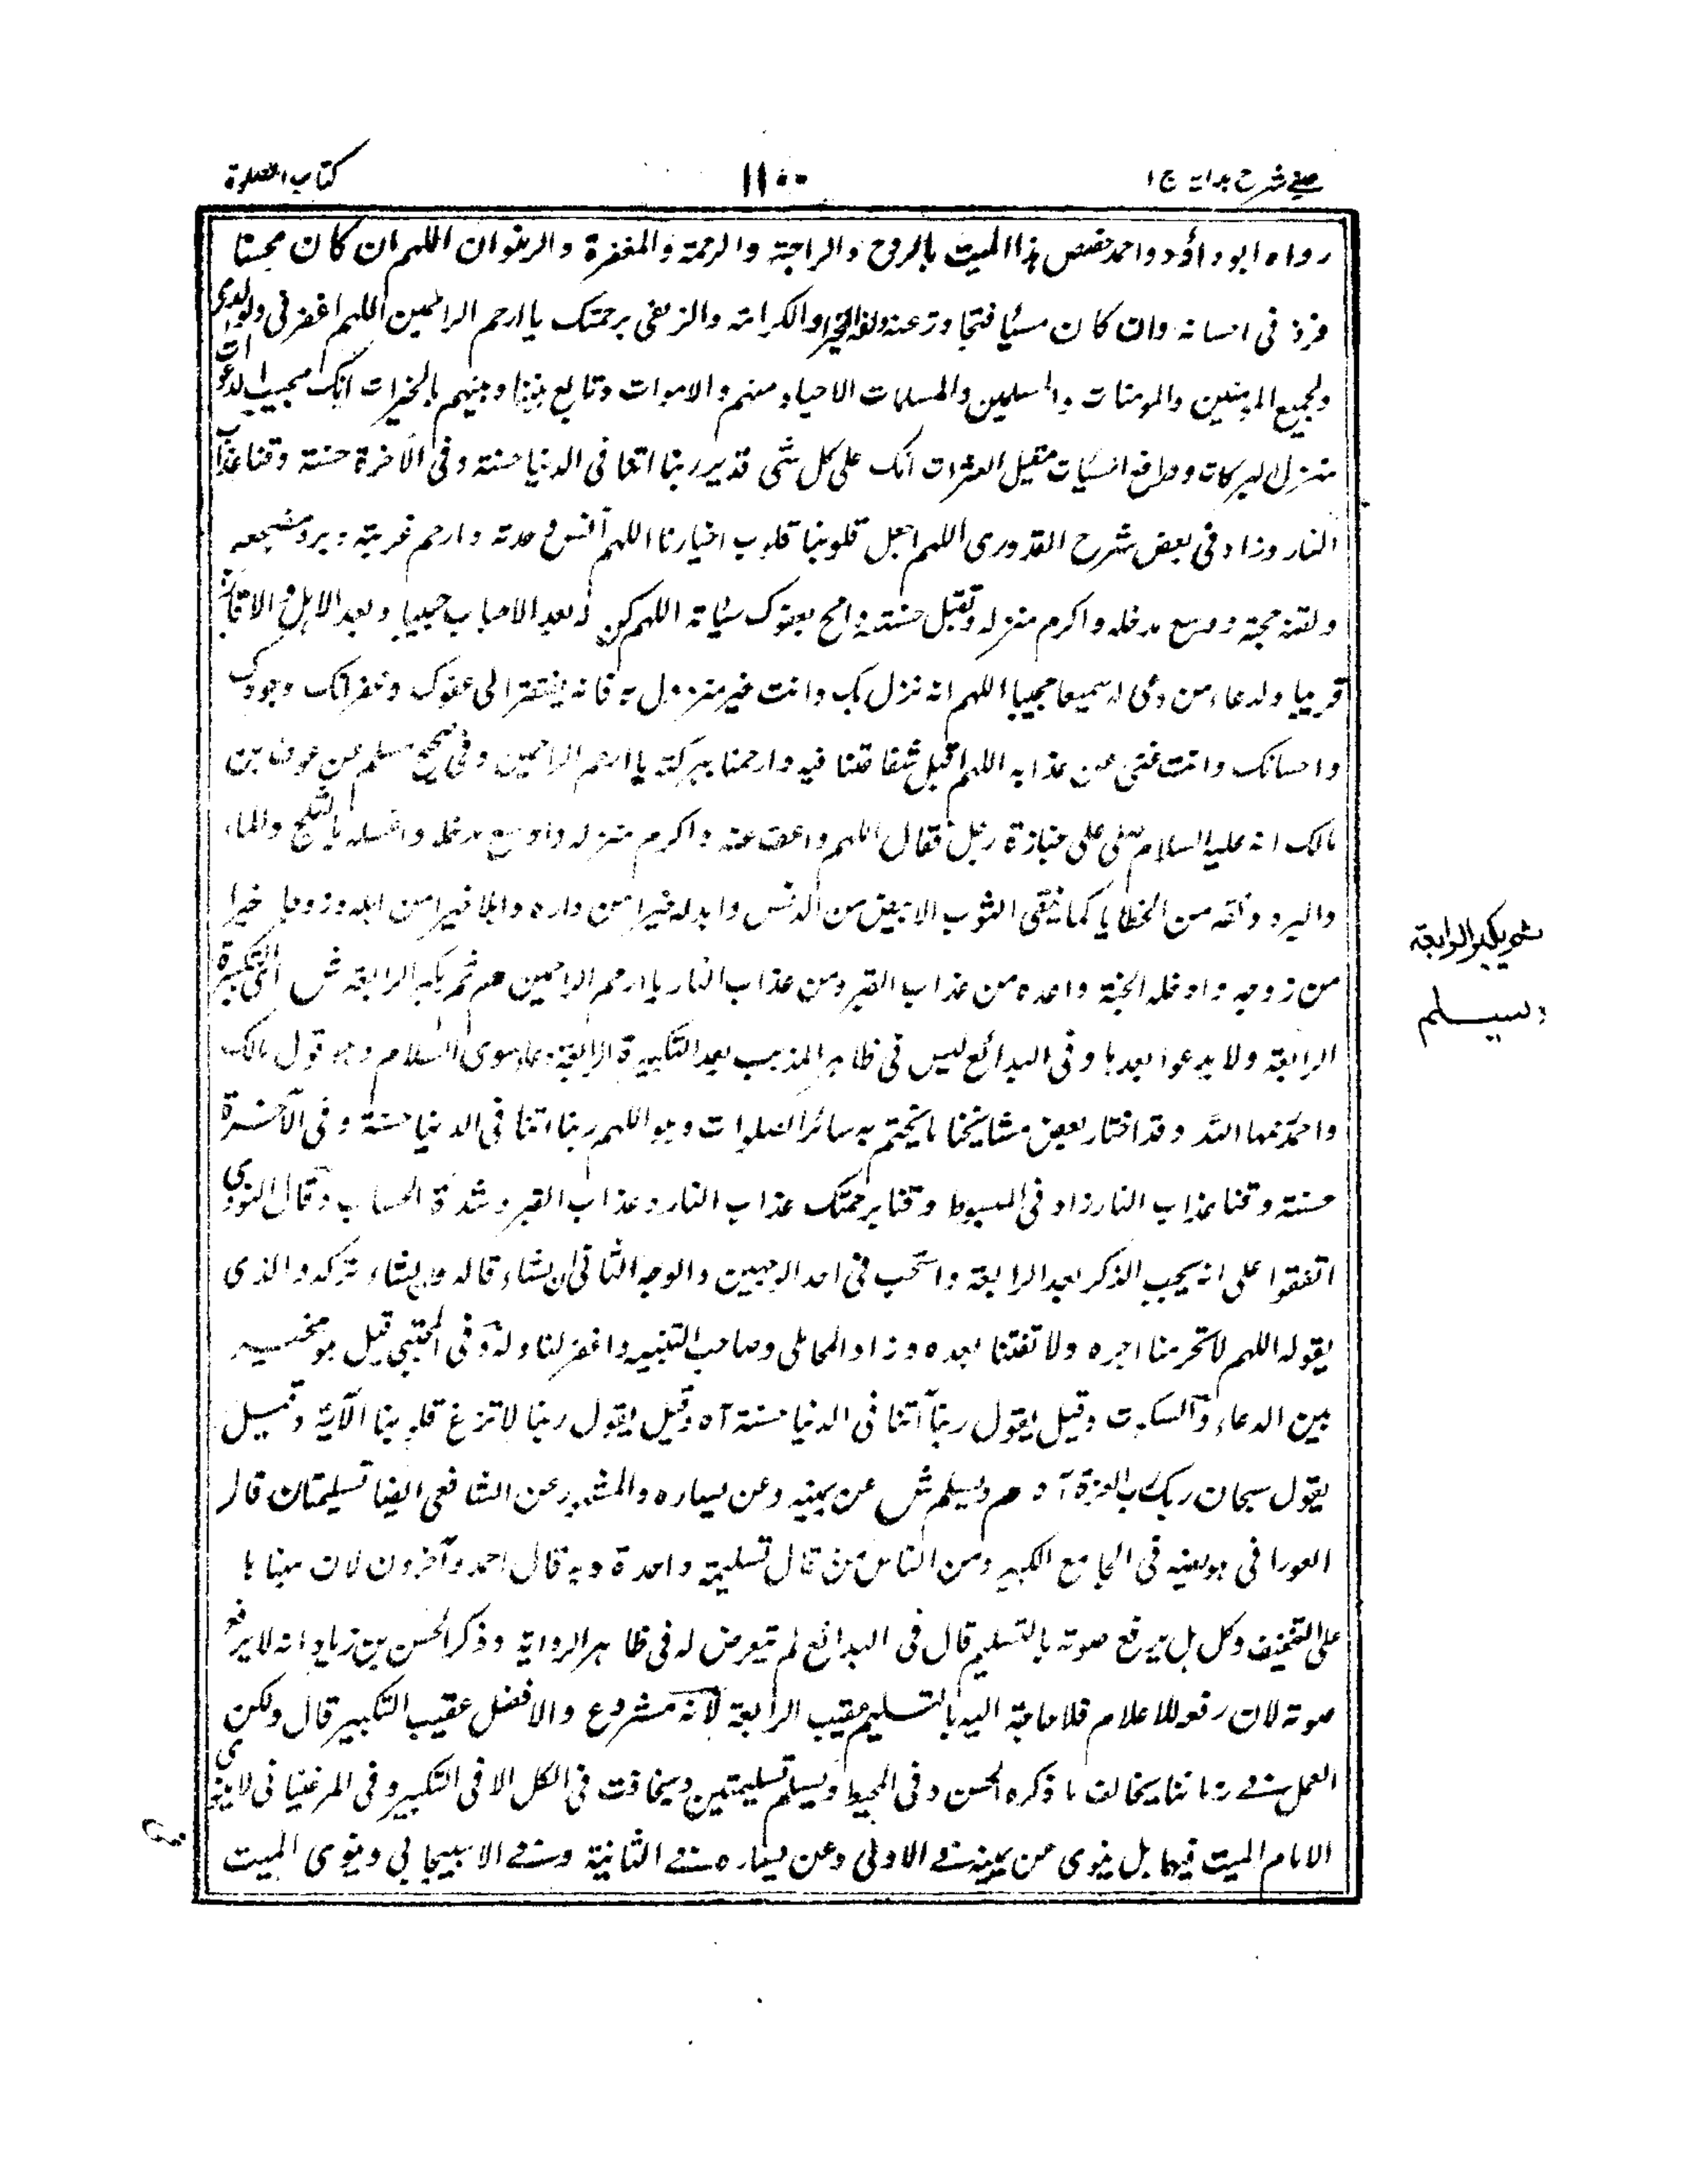 عيني شرح هداية ج ١
١١٠٠
كتاب الصلوة
رواه ابوداؤد واحمد خصص هذا الميت بالروح والراحة والرحمة والمغفرة والرضوان اللهم ان كان محسنا
فزد فى احسانه وان كان مسئيا فتجاوز عنه ولقه الخير والكرامة والزلفى برحمتك يا ارحم الراحمين اللهم اغفرلى ولوالدى
ولجميع المومنين والمومنات والمسلمين والمسلمات الاحياء منهم والاموات وتابع بيننا وبينهم بالخيرات انك مجيب الدعوات
منزل البركات ودافع السيات مقيل العثرات انك على كل شى قدير ربنا اتنا فى الدنيا حسنة وفى الآخرة حسنة وقنا عذاب
النار وزاد فى بعض شرح القدورى اللهم اجعل قلوبنا قلوب اخيارنا اللهم آنس وحدته وارحم غربته وبرد مضجعه
ولقنه حجته ووسع مدخله واكرم منزله وتقبل حسنته وامح بعفوك سئياته اللهم كن له بعد الاحباب حبيبا وبعد الاهل والاقارب
قريبا ولدعاء من دعى له سميعا مجيبا اللهم انه نزل بك وانت خير منزول به فانه يفتقر الى عفوك وغفرانك وجودك
واحسانك وانت غنى عن عذابه اللهم اقبل شفاعتنا فيه وارحمنا ببركته يا ارحم الراحمين وفى صحيح مسلم عن عوف بن
مالك انه عليه السلام صلى على جنازة رجل فقال اللهم واعف عنه واكرم منزله واوسع مدخله واغسله بالثلج والماء
والبرد ونقه من الخطايا كما ينقى الثوب الابيض من الدنس وابدله خيرا من داره واهلا خيرا من اهله وزوجا خيرا
من زوجه وادخله الجنة واعده من عذاب القبر ومن عذاب النار يا ارحم الراحمين هم ثم يكبر الرابعة ش اى التكبيرة
الرابعة ولا يدعوا بعدها وفى البدائع ليس فى ظاهر المذهب بعد التكبيرة الرابعة دعاء سوى السلام وهو قول مالك
واحمد رحمهما الله وقد اختار بعض مشايخنا ما يختم به سائر الصلوات وهو اللهم ربنا اتنا فى الدنيا حسنة وفى الآخرة
حسنة وقنا عذاب النار زاد فى المبسوط وقنا برحمتك عذاب النار وعذاب القبر وشدة الحساب وقال النووى
اتفقوا على انه يجب الذكر بعد الرابعة واستحب فى احد الوجهين والوجه الثانى ان يشاء قاله وان يشاء تركه والذى
يقوله اللهم لا تحرمنا اجره ولا تفتنا بعده وزاد المحاملى وصاحب التنبيه واغفر لنا وله وفى المجتبى قيل هو مخير
بين الدعاء والسكوت وقيل يقول ربنا آتنا فى الدنيا حسنة آه وقيل يقول ربنا لا تزغ قلوبنا الآية وقيل
يقول سبحان ربك رب العزة آه هم ويسلم ش عن يمينه وعن يساره والمشهور عن الشافعى ايضا تسليمتان قال
الفورانى هو بعينه فى الجامع الكبير ومن الناس من قال تسليمة واحدة وبه قال احمد وآخرون لان مبناها
على التخفيف وكل هل يرفع صوته بالتسليم قال فى البدائع لم يتعرض له فى ظاهر الرواية وذكر الحسن بن زياد انه لا يرفع
صوته لان رفعه للاعلام فلا حاجة اليه بالتسليم عقيب الرابعة لانه مشروع والافضل عقيب التكبير قال ولكن
العمل فى زماننا يخالف ما ذكره الحسن وفى المحيط ويسلم تسليمتين ويخافت فى الكل الا فى التكبير وفى المرغينانى لا ينوى
الامام الميت فيها بل ينوى من يمينه فى الاولى وعن يساره فى الثانية وفى الاسبيجابى وينوى الميت
ثم يكبر الرابعة
ويسلم